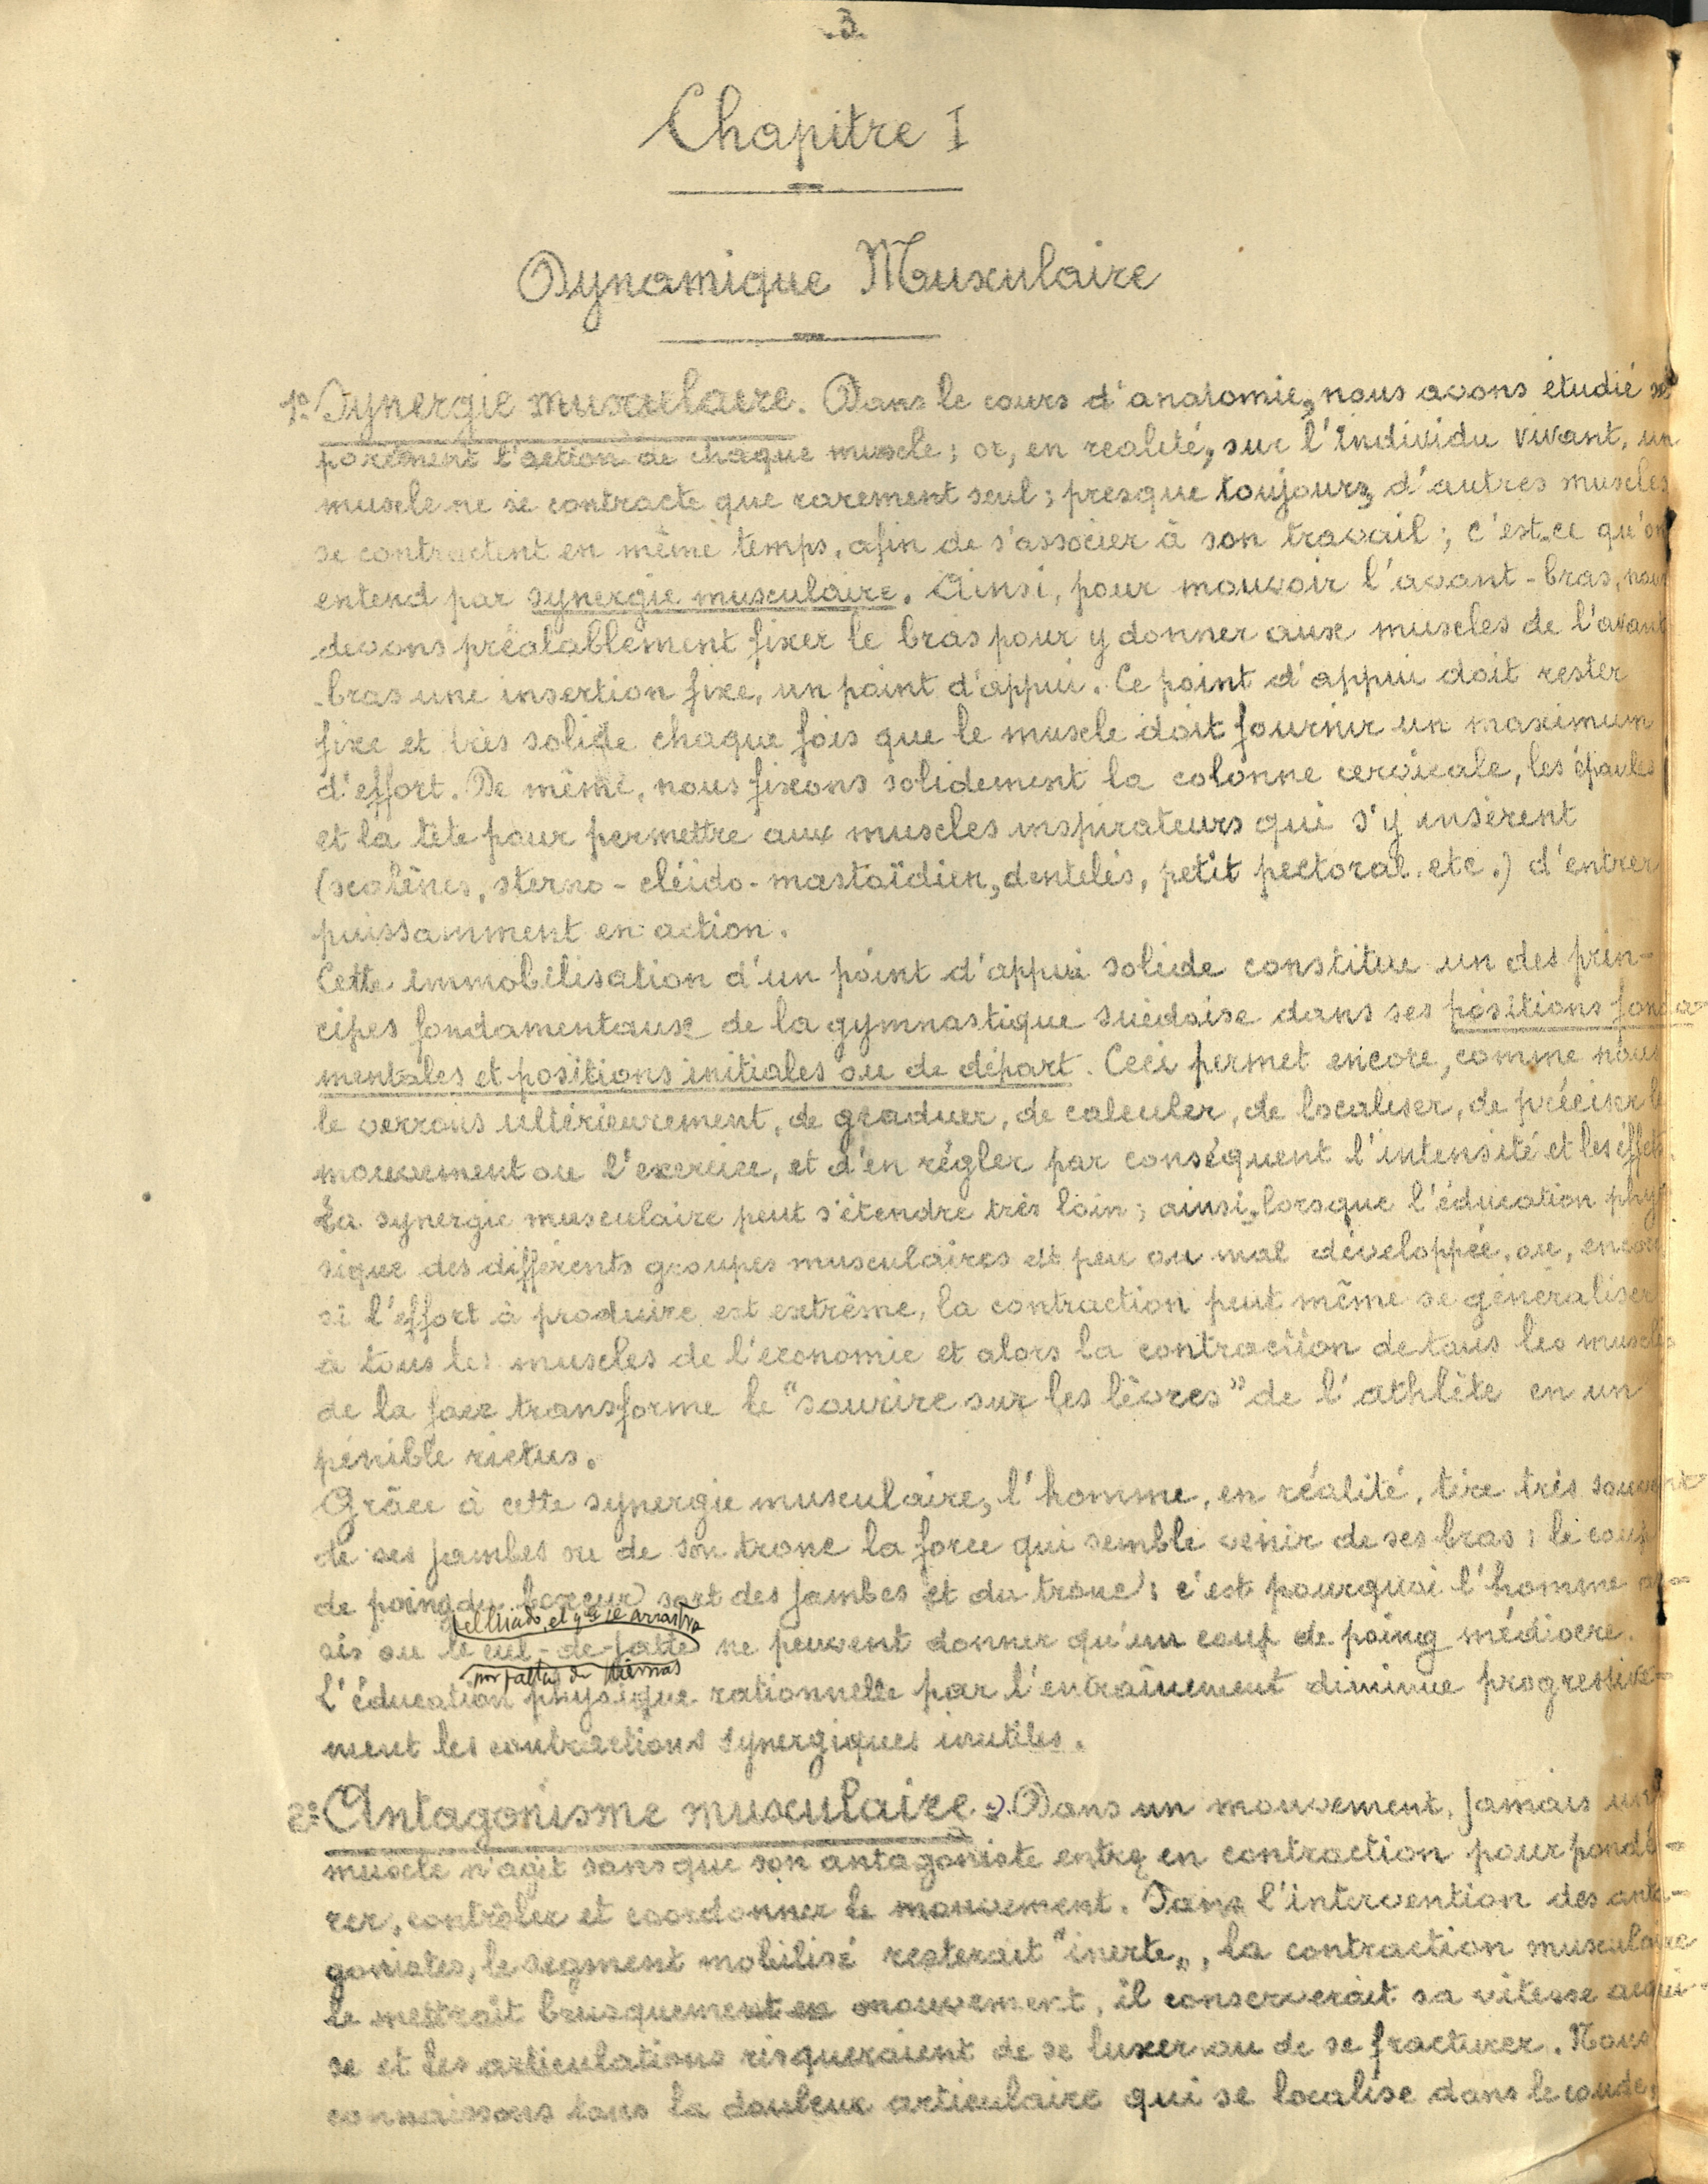 .3.
Chapitre I
Dynamique Musculaire
1º Synergie musculaire. Dans le cours d'anatomie, nous avons étudié sé
parément l'action de chaque muscle ; or, en realité, sur l'individu vivant, un
muscle ne se contracte que rarement seul ; presque toujours d'autres muscles
se contractent en même temps, afin de s'associer à son travail ; c'est-ce qu'on
entend par synergie musculaire. Ainsi, pour mouvoir l'avant-bras, nous
devons préalablement fixer le bras pour y donner aux muscles de l'avant
-bras une insertion fixe, un point d'appui. Ce point d'appui doit rester
fixe et très solide chaque fois que le muscle doit fournir un maximum
d'effort. De même, nous fixons solidement la colonne cervicale, les épaules
et la tête pour permettre aux muscles inspirateurs qui s'y insèrent
(scalènes, sterno-cléido-mastoïdien, dentelés, petit pectoral. etc.) d'entrer
puissamment en action.
Cette immobilisation d'un point d'appui solide constitue un des prin-
cipes fondamentaux de la gymnastique suédoise dans ses positions fonda-
mentales et positions initiales ou de départ. Ceci permet encore, comme nous
le verrons ultérieurement, de graduer, de calculer, de localiser, de préciser le
mouvement ou l'exercice, et d'en régler par conséquent l'intensité et les effets.
La synergie musculaire peut s'étendre très loin ; ainsi, lorsque l'éducation phy
sique des différents groupes musculaires est peu ou mal développée, ou, encore
si l'effort à produire est extrême, la contraction peut même se généraliser
à tous les muscles de l'economie et alors la contraction de tous les muscles
de la face transforme le "sourire sur les lèvres" de l'athlète en un
pénible rictus.
Grâce à cette synergie musculaire, l'homme, en réalité, tire très souvent
de ses jambes ou de son tronc la force qui semble venir de ses bras ; le coup
de poing du boxeur sort des jambes et du tronc ; c'est pourquoi l'homme as-
el lisiado, el que se arrastra
sis ou le cul-de-jatte ne peuvent donner qu'un coup de poing médiocre.
por faltar de piernas
L'éducation physique rationnelle par l'entraînement diminue progressive-
ment les contractions synergiques inutiles.
2º Antagonisme musculaire. Dans un mouvement, jamais un
muscle n'agit sans que son antagoniste entre en contraction pour pondé-
rer, contrôler et coordonner le mouvement. Sans l'intervention des anta-
gonistes, le segment mobilisé resterait "inerte", la contraction musculaire
le mettrait brusquement en mouvement, il conserverait sa vitesse acqui-
se et les articulations risqueraient de se luxer ou de se fracturer. Nous
connaissons tous la douleur articulaire qui se localise dans le coude,